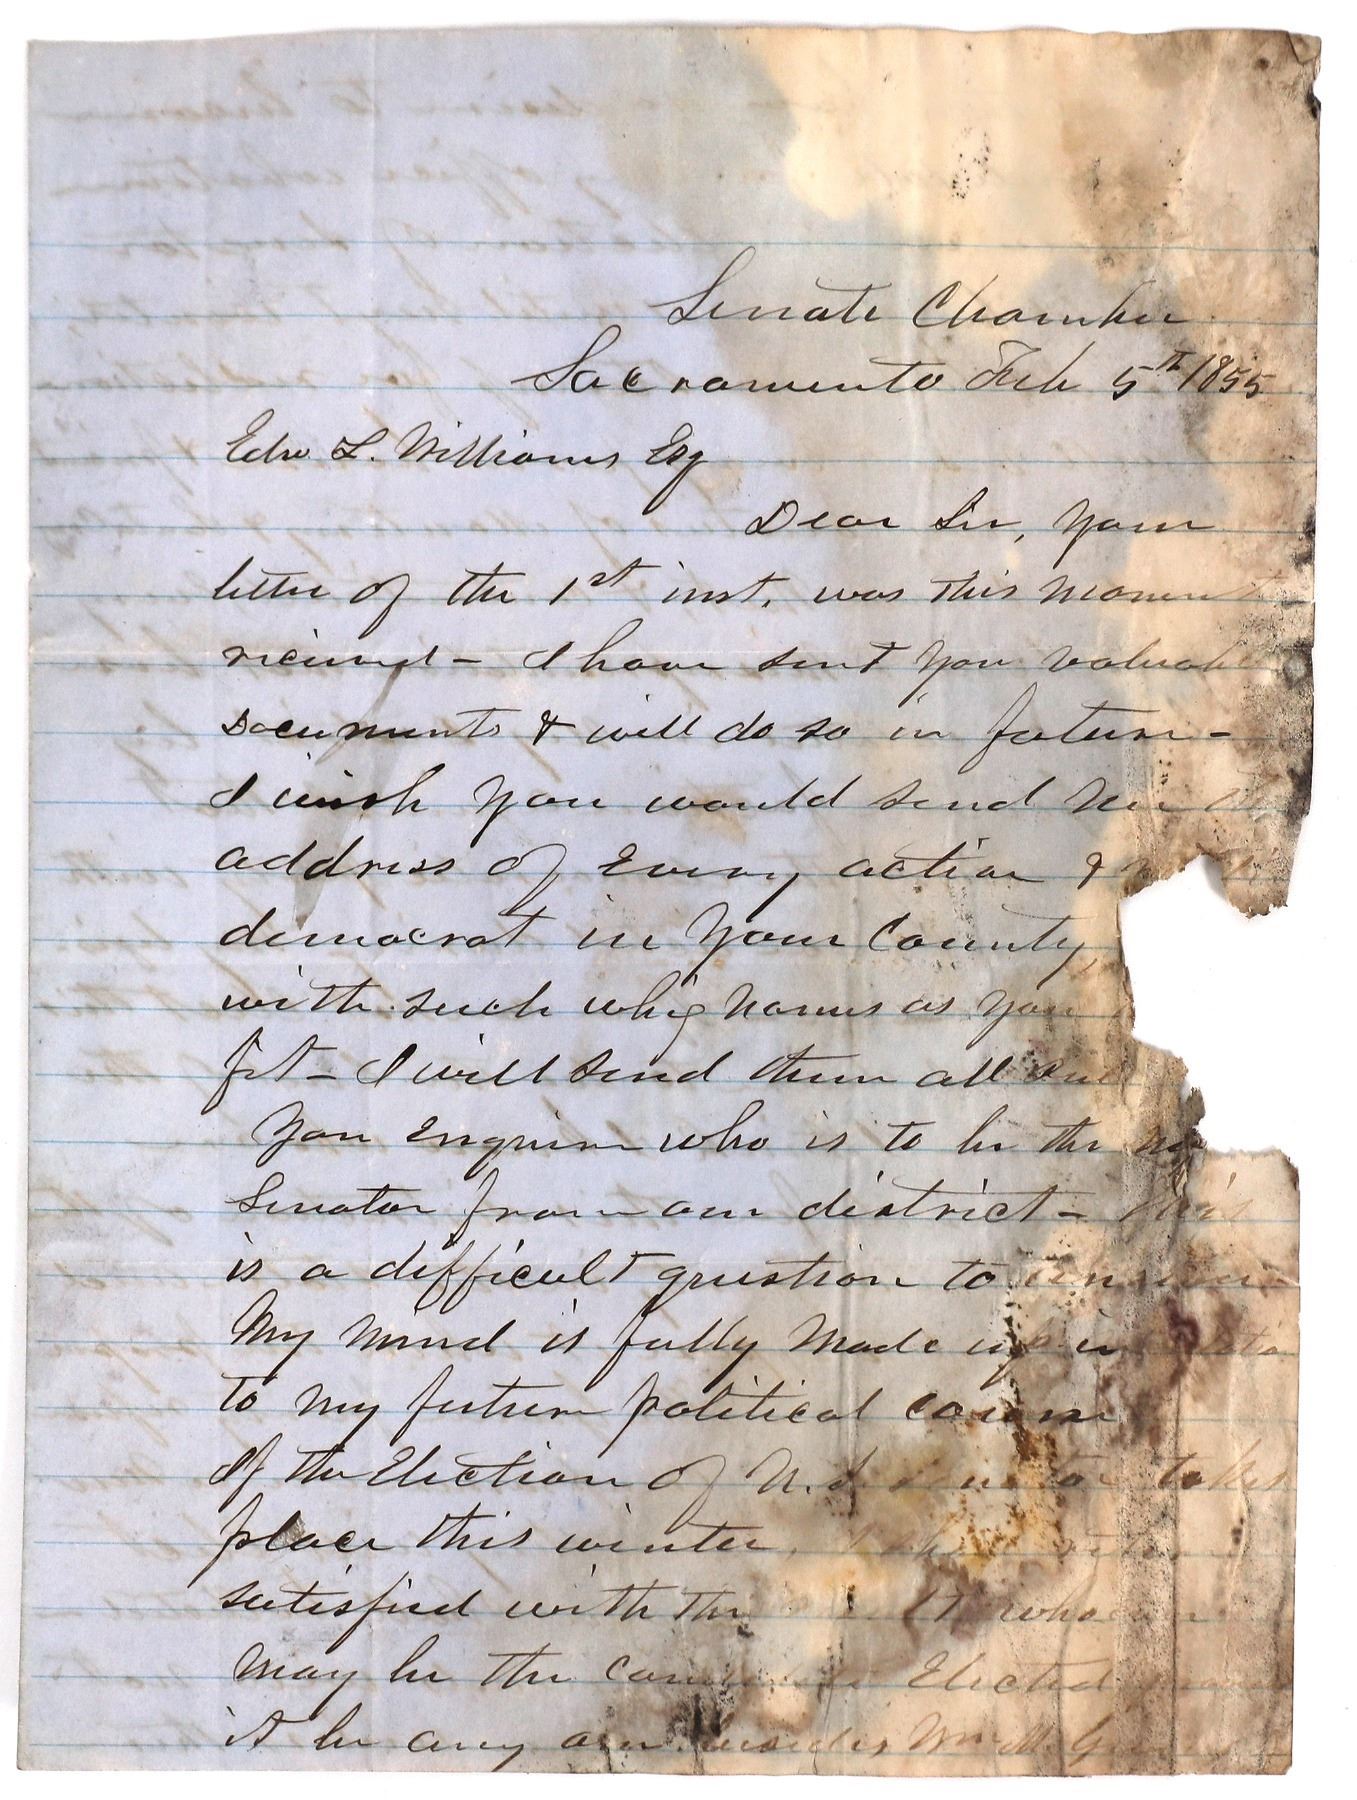 Senate Chamber
Sacramento Feb 5th 1855
Edw L. Williams Esq
Dear Sir, Your
letter of the 1st inst. was this moment
received - I have sent you valuable
Documents & will do so in future -
I wish you would send me
address of Every active &
democrat in your County,
with such whig names as you
fit - I will send them all
You Enquire who is to be the
Senator from our district - this
is a difficult question to answer
My mind is fully made up in
to my future political course
If the Election of U.S. Senator takes
place this winter, I
satisfied with the
may be the Elected
it be any one besides Wm M.